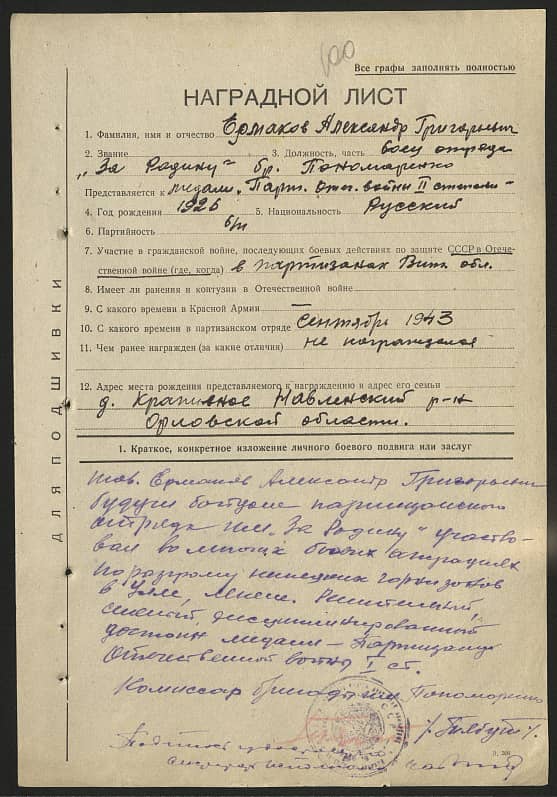 Все графы заполнять полностью
НАГРАДНОЙ ЛИСТ
1. Фамилия, имя и отчество Ермаков Александр Григорьевич
2. Звание 3. Должность, часть боец отряда
„За Родину" бр. Пономаренко
Представляется к медали „Парт. Отеч. войны II степени"
4. Год рождения 1926 5. Национальность Русский
6. Партийность б/п
7. Участие в гражданской войне, последующих боевых действиях по защите СССР в Отече-
ственной войне (где, когда) в партизанах Вит. обл.
8. Имеет ли ранения и контузии в Отечественной войне
9. С какого времени в Красной Армии —
10. С какого времени в партизанском отряде Сентябрь 1943
11. Чем ранее награжден (за какие отличия) не награждался
12. Адрес места рождения представляемого к награждению и адрес его семьи
д. Крапивное Навленский р-н
Орловской области.
ДЛЯ ПОДШИВКИ
1. Краткое, конкретное изложение личного боевого подвига или заслуг
тов. Ермаков Александр Григорьевич
будучи бойцом партизанского
отряда им „За Родину" участво-
вал во многих боевых операциях
по разгрому немецких гарнизонов
в Уле,
смелый, дисциплинированный
достоин медали — Партизану
Отечественной войны I ст.
Комиссар бригады им Пономаренко